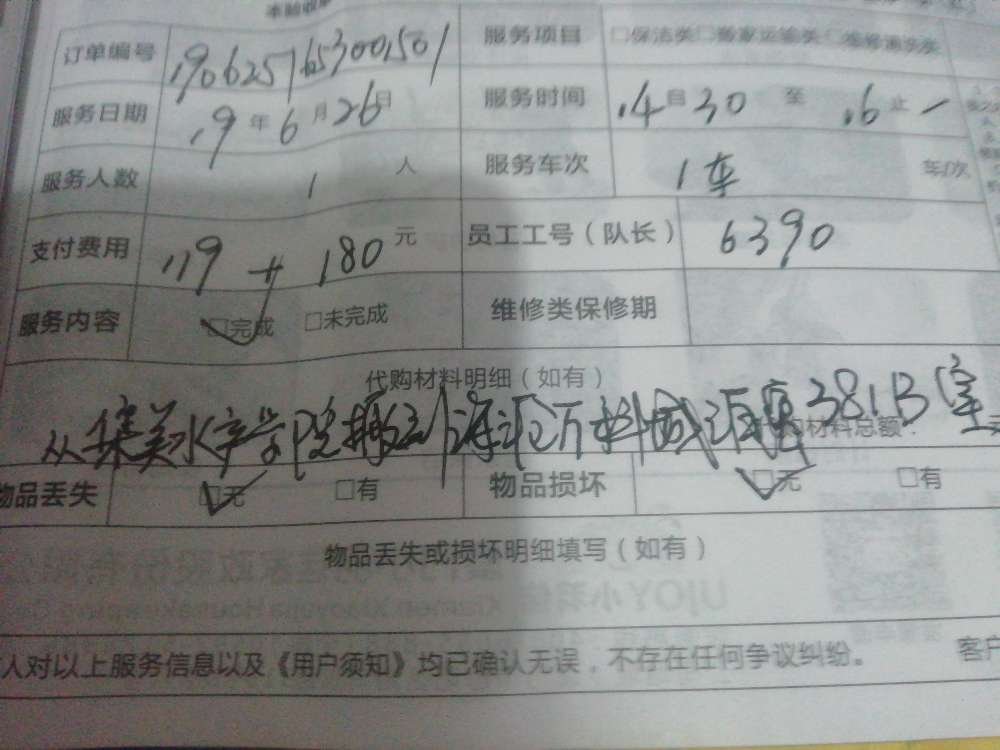 订单编号 190625165300501 服务项目 □保洁类□搬家运输类□维修清洗类
服务日期 19年6月26日 服务时间 14自30至16止
服务人数 1人 服务车次 1车 车/次
支付费用 119+180元 员工工号（队长） 6390
服务内容 ☑完成 □未完成 维修类保修期
代购材料明细（如有）
从集美水产学院搬到 381B 室
材料总额：
物品丢失 ☑无 □有 物品损坏 ☑无 □有
物品丢失或损坏明细填写（如有）
人对以上服务信息以及《用户须知》均已确认无误，不存在任何争议纠纷。 客户